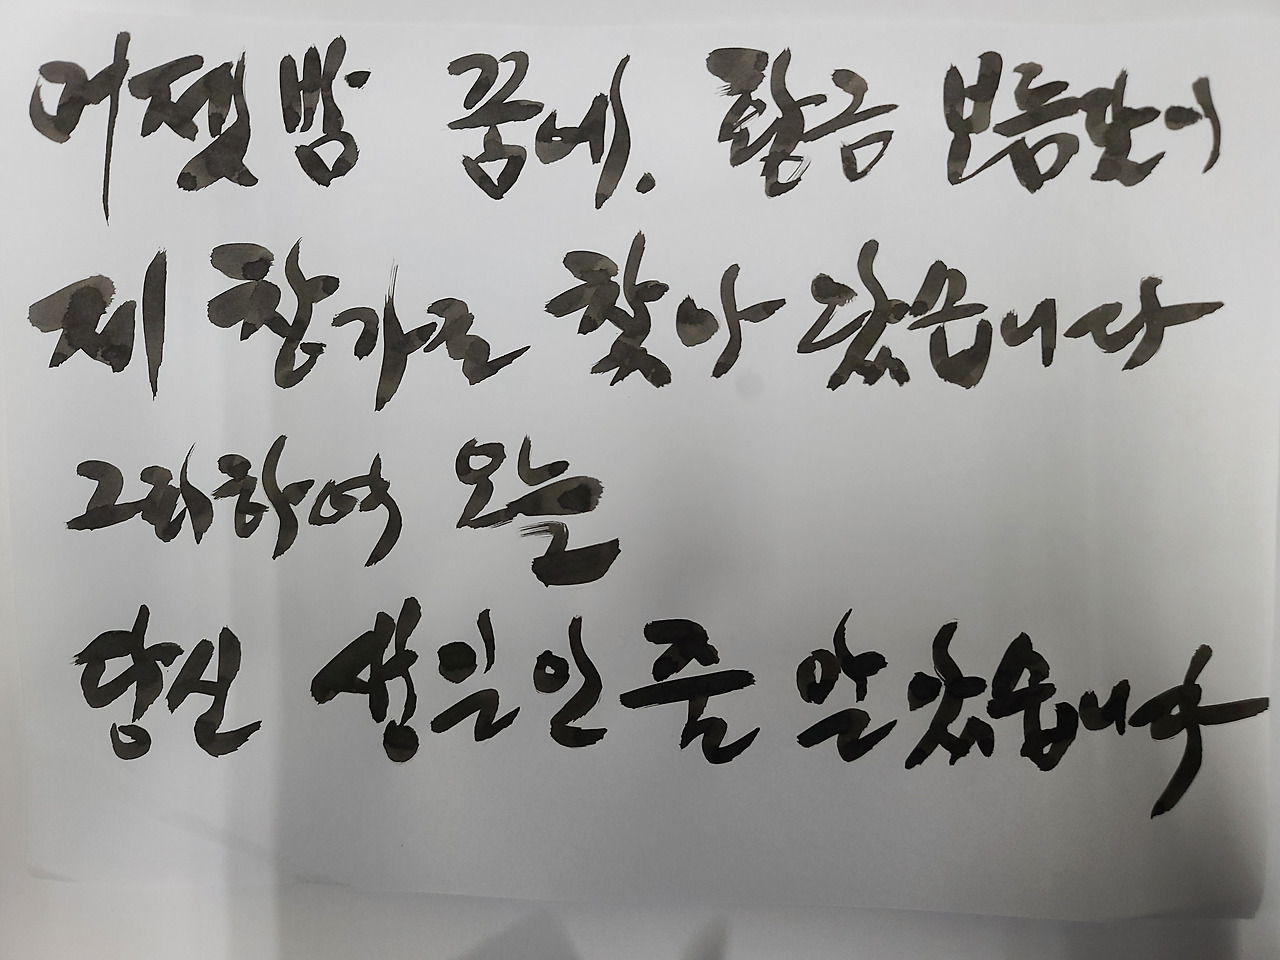 어젯밤 꿈에. 황금 보름달이
제 창가로 찾아 왔습니다
그리하여 오늘
당신 생일인 줄 알았습니다